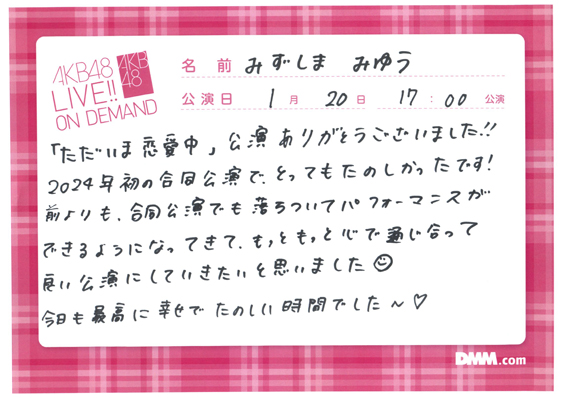 AKB48
LIVE!!
ON DEMAND
AKB
48
名前 みずしま みゆう
公演日 1月 20日 17:00 公演
「ただいま恋愛中」公演ありがとうございました!!
2024年初の合同公演で、とってもたのしかったです!
前よりも、合同公演でも落ちついてパフォーマンスが
できるようになってきて、もっともっと心で通じ合って
良い公演にしていきたいと思いました☺
今日も最高に幸せでたのしい時間でした〜♡
DMM.com